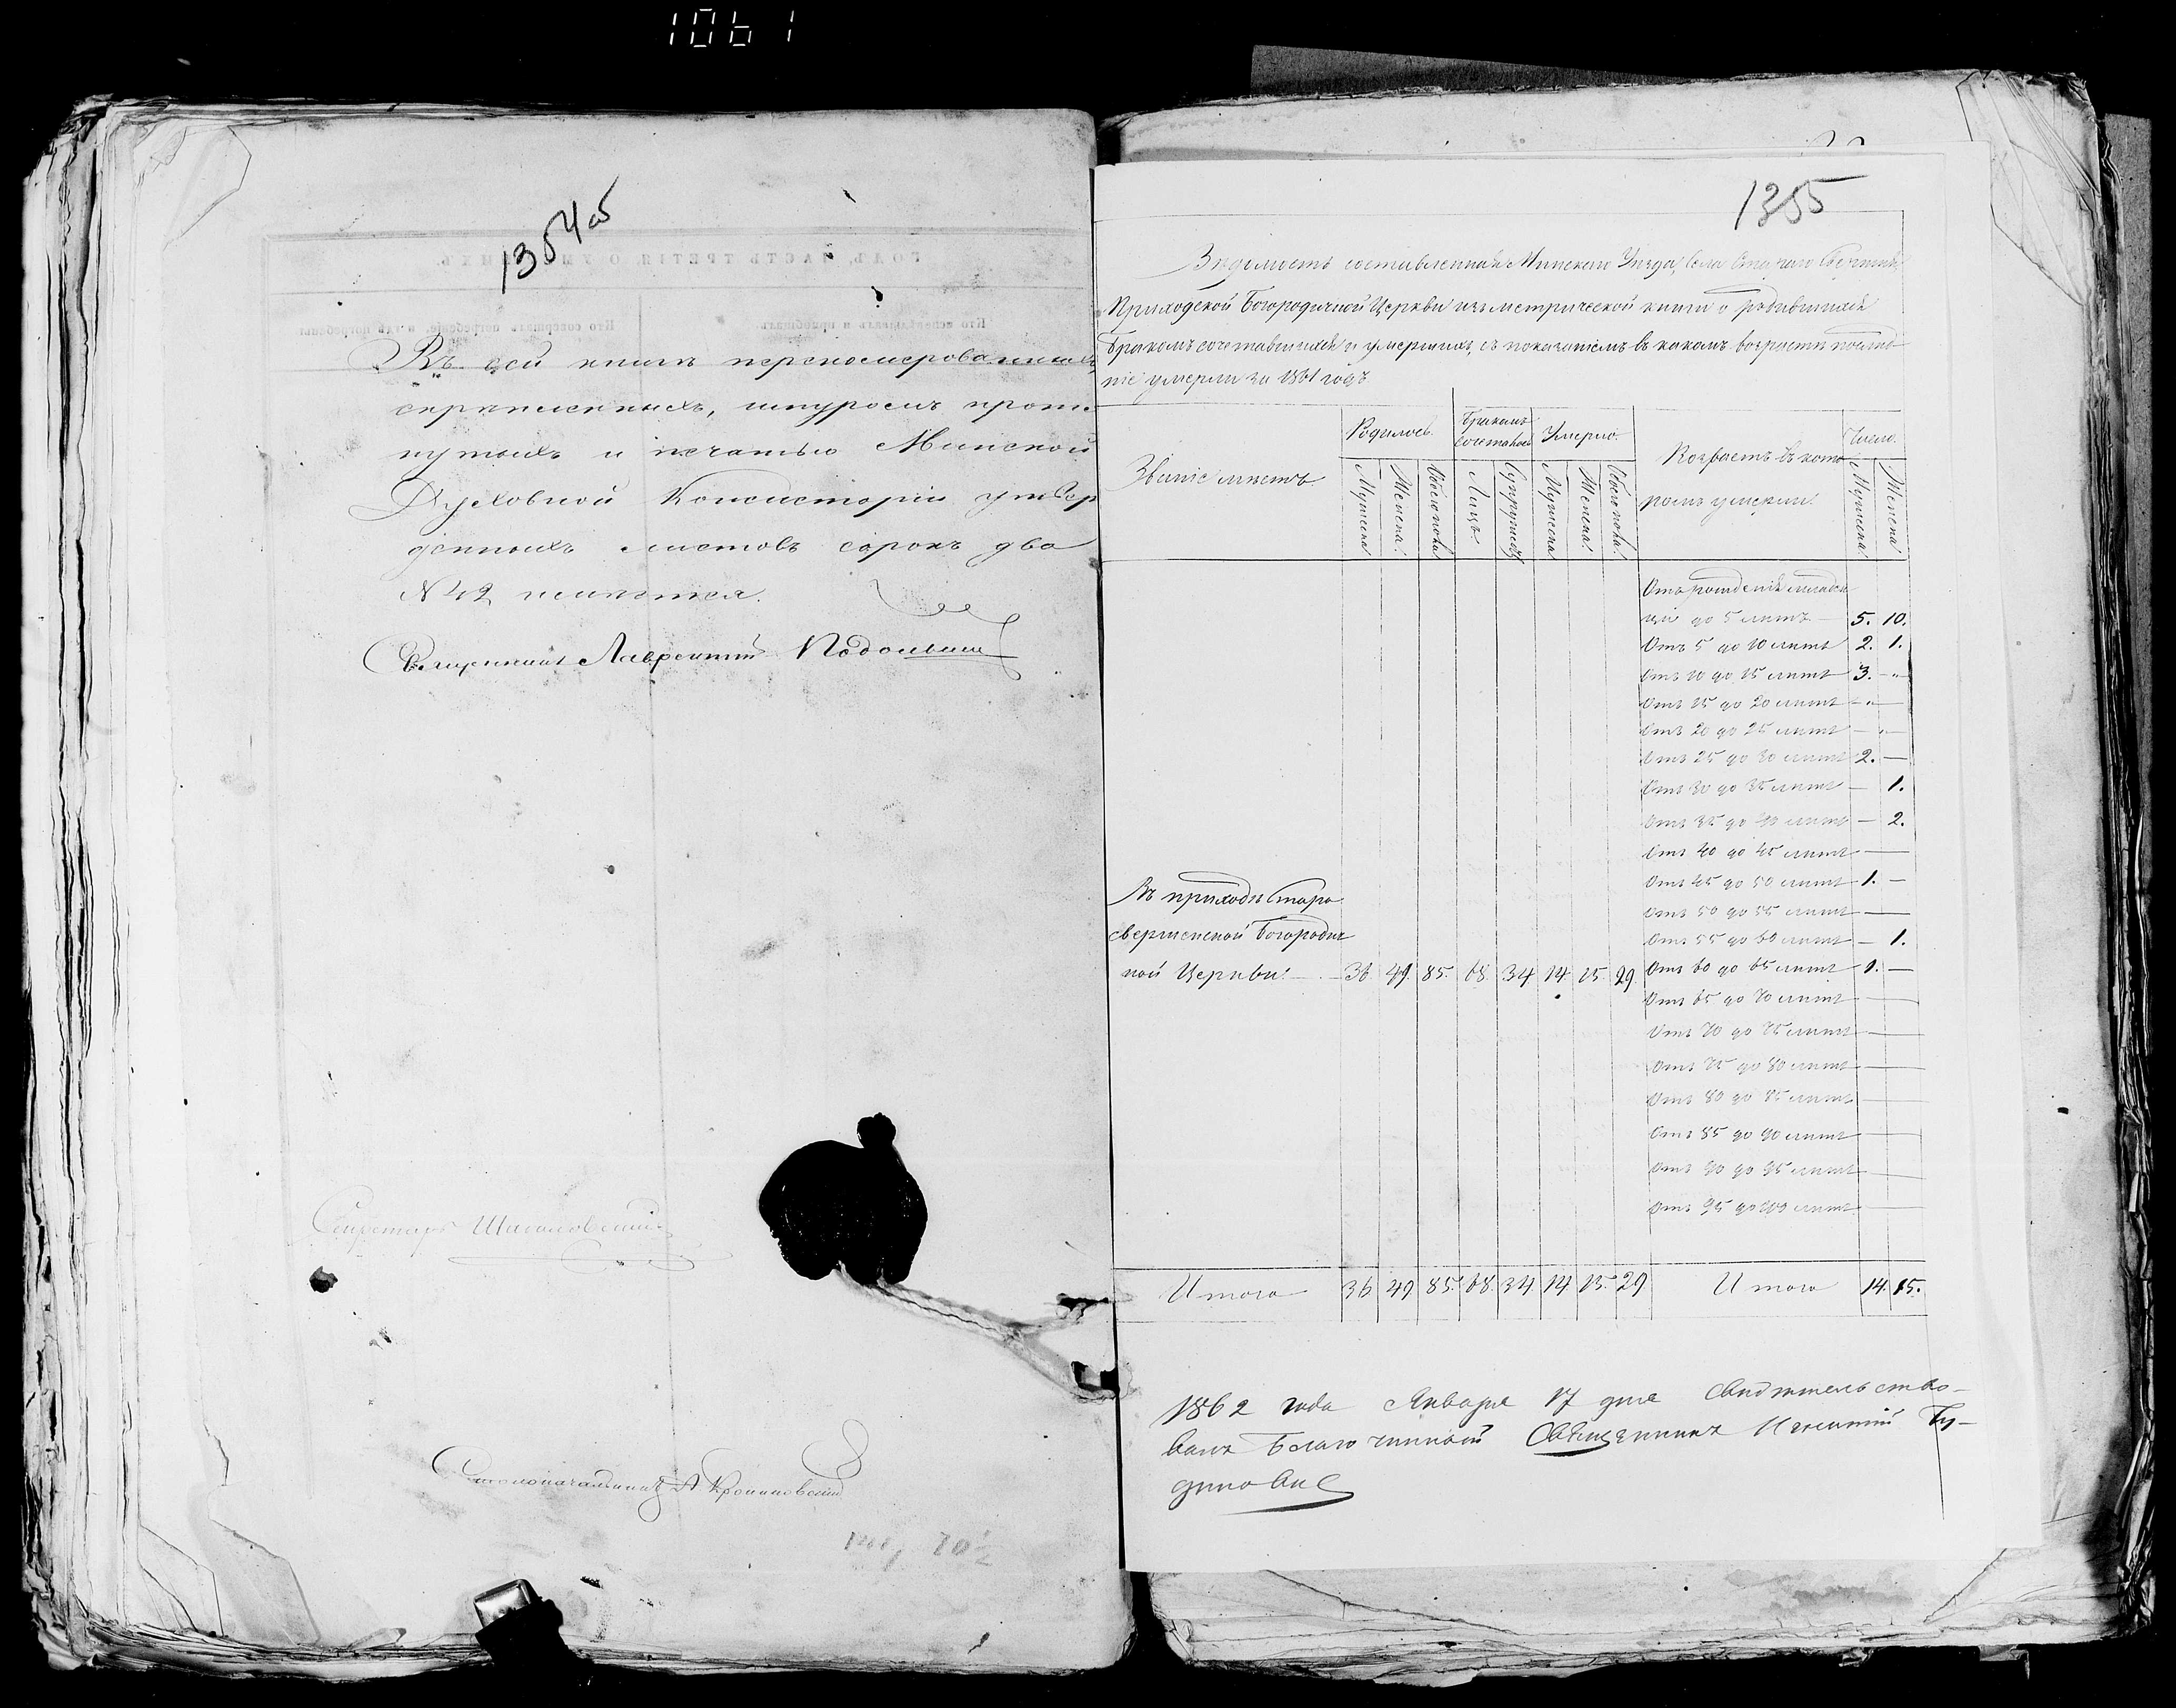 1061
1354об
Въ сей книгѣ перенумерованныхъ
скрѣпленныхъ, шнуромъ прошну
путыхъ и печатью Минской
Духовной Консисторіи утвер
жденныхъ листовъ сорокъ два
№ 42 имѣется.
Священникъ Лаврентій
Секретарь
Столоначальникъ А.
1355
Вѣдомость составленная Минскаго Уѣзда, Села Стараго Свержня
Приходской Богородичной Церкви изъ метрической книги о родившихся
Бракомъ сочетавшихся и умершихъ, съ показаніемъ въ какомъ возрастѣ послѣд
ніе умерли за 1861 годъ
Званіе мѣстъ. Родилось. Бракомъ сочеталось Умерло. Возрастъ въ кото
ромъ умерли. Число.
Мужеска Женска. Обоего пола Лицъ. Супружествъ Мужеска Женска. Обоего пола. Мужеска Женска
Отъ рожденія младен
ція до 5 лѣтъ 5. 10.
Отъ 5 до 10 лѣтъ 2. 1.
Отъ 10 до 15 лѣтъ 3. - "
Отъ 15 до 20 лѣтъ - " -
Отъ 20 до 25 лѣтъ - " -
Отъ 25 до 30 лѣтъ 2. —
Отъ 30 до 35 лѣтъ — 1.
Отъ 35 до 40 лѣтъ — 2.
Отъ 40 до 45 лѣтъ —
Отъ 45 до 50 лѣтъ 1. —
Отъ 50 до 55 лѣтъ —
Отъ 55 до 60 лѣтъ — 1.
Отъ 60 до 65 лѣтъ 1. —
Отъ 65 до 70 лѣтъ —
Отъ 70 до 75 лѣтъ —
Отъ 75 до 80 лѣтъ —
Отъ 80 до 85 лѣтъ —
Отъ 85 до 90 лѣтъ —
Отъ 90 до 95 лѣтъ —
Отъ 95 до 100 лѣтъ —
Въ приходѣ Старо
свержнской Богородич
ной Церкви. 36 49. 85. 68. 34 14 15. 29.
Итого 36 49 85. 68. 34. 14 15. 29 Итого 14. 15.
1862 года Января 17 дня свидѣтельство-
валъ Благочинный Священникъ Игнатій